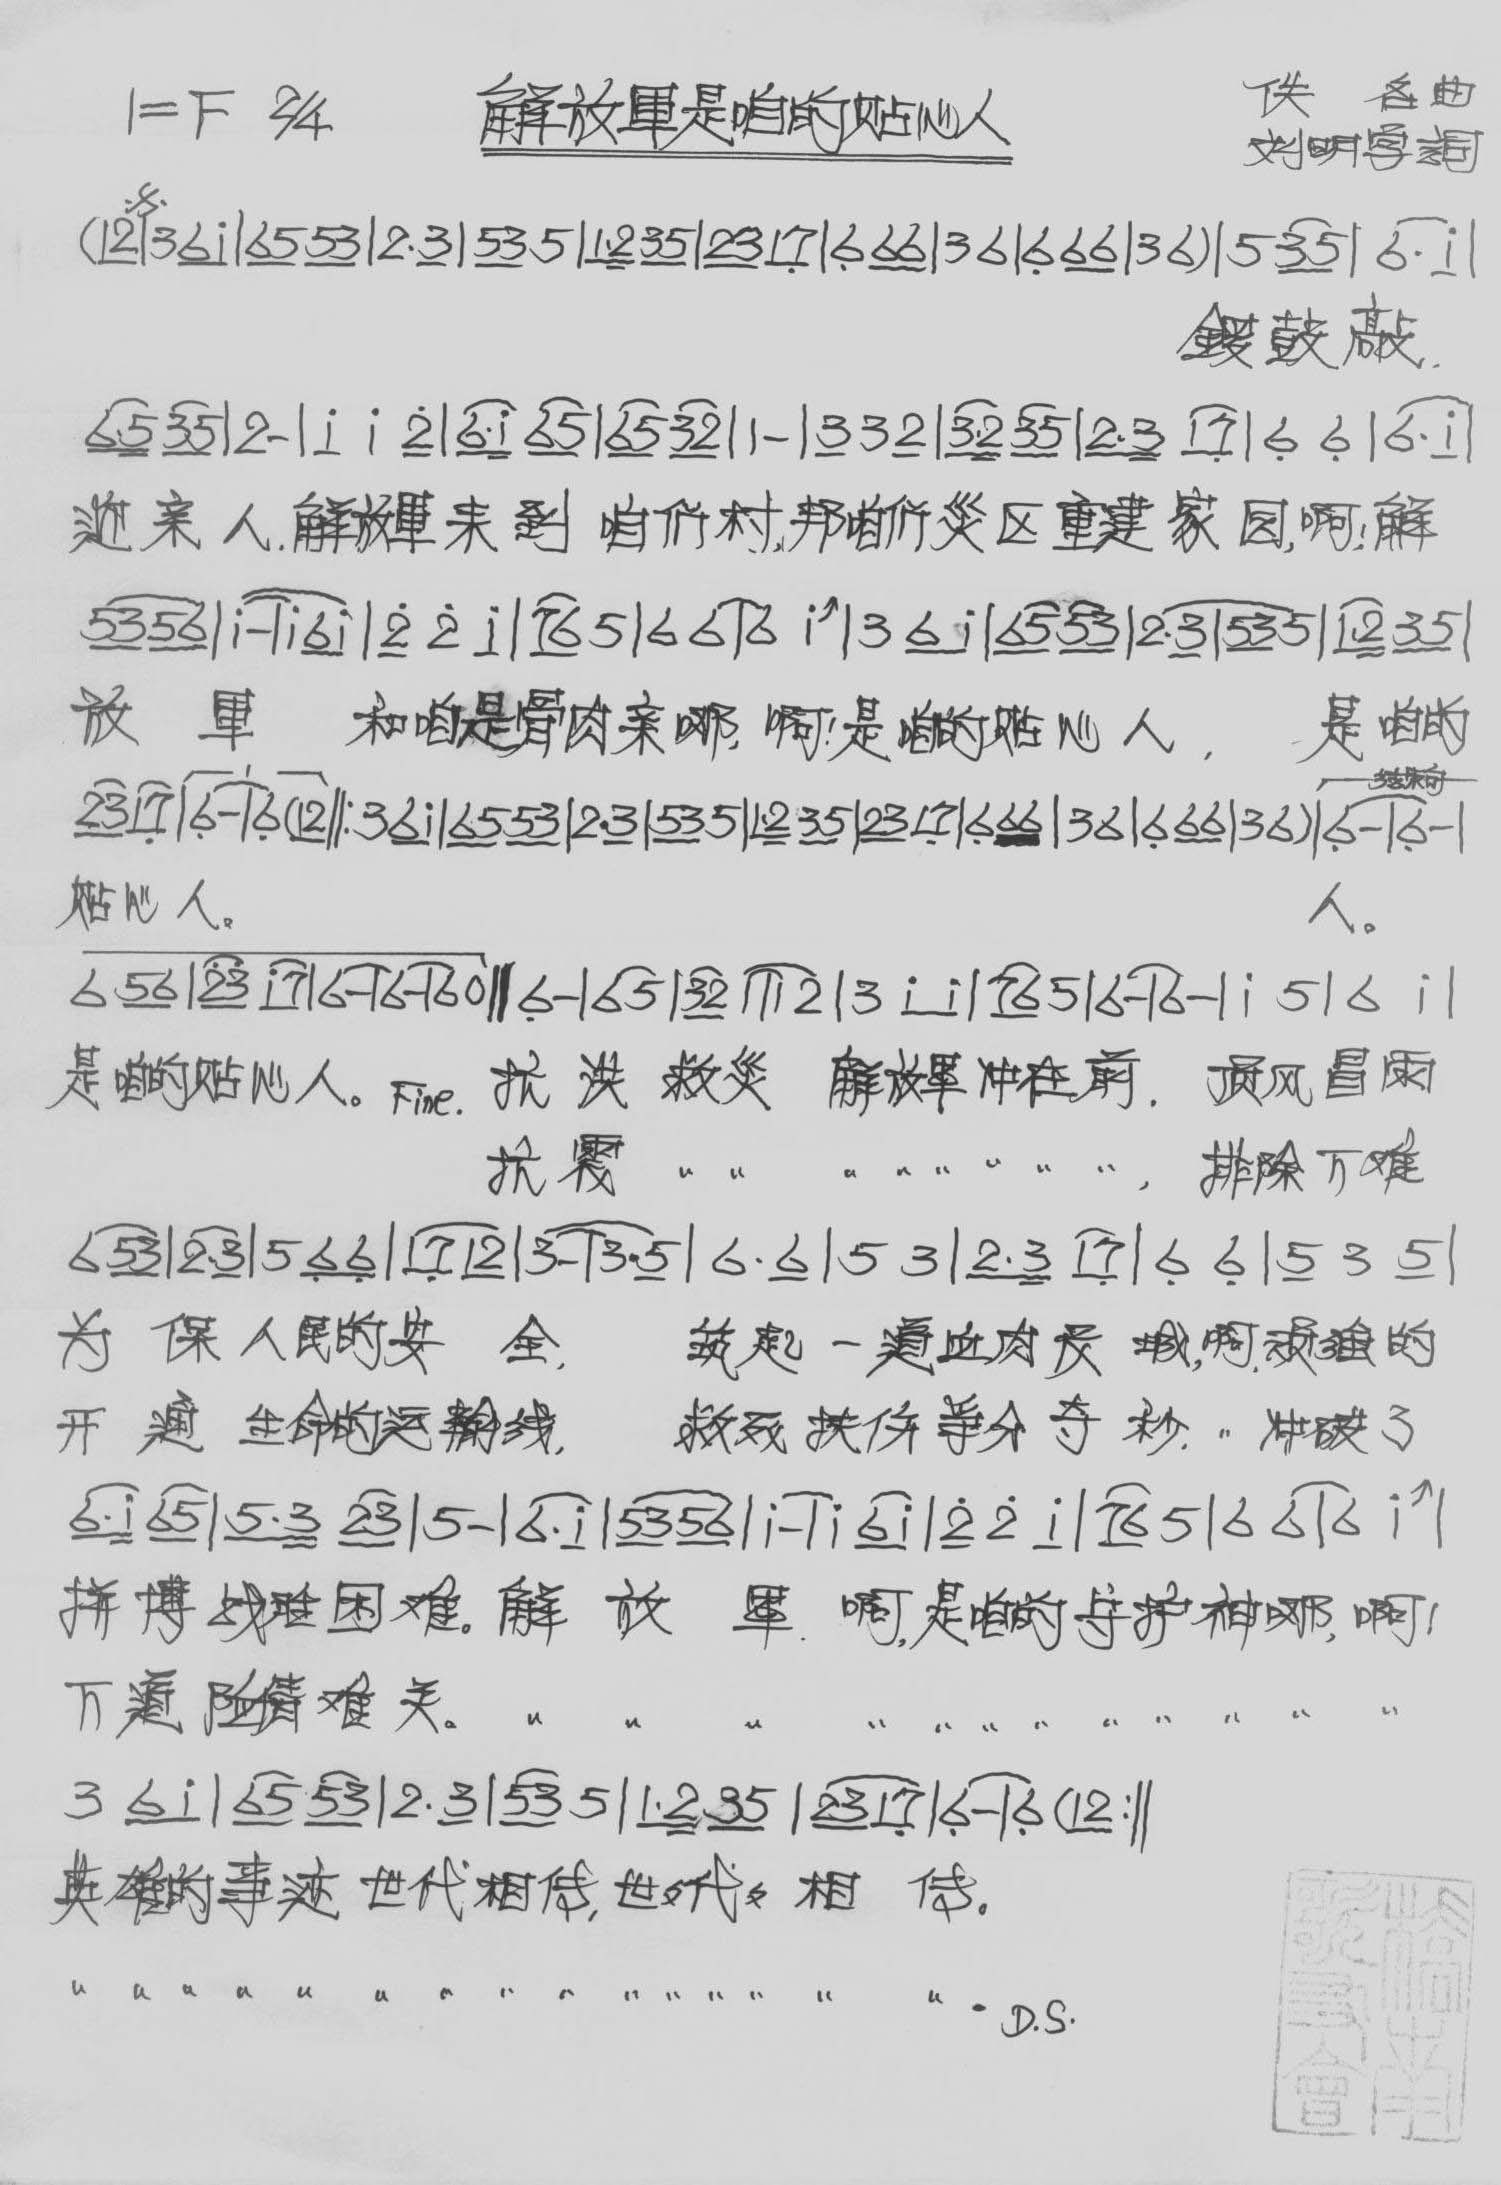 1=F 2/4 解放軍是咱的贴心人 佚名曲
刘明学詞
(12|36i|6553|2·3|535|1·235|2317|666|36|666|36)|535|6·i|
鑼鼓敲,
6·535|2-|i i 2|6·i 65|6532|1-|332|3·235|2·3 17|6 6|6·i|
迎亲人.解放軍来到咱们村,帮咱们災区重建家园,啊!解
5356|i-|i6i|2 2 i|765|66|6 i|3 6i|6553|2·3|535|1·235|
放軍 和咱是骨肉亲哪,啊!是咱的贴心人, 是咱的
2317|6-|6(12‖:36i|6·553|2·3|535|1·235|2317|666|36|666|36)|6-|6-|
结束句
贴心人。 人。
656|23 i7|6-|6-|60‖6-|65|32 1|12|3 ii|765|6-|6-|i 5|6 i|
是咱的贴心人。Fine. 抗洪救災 解放軍冲在前. 顶风冒雨
抗震 〃 〃 〃 〃 〃 〃 〃 〃, 排除万难
653|2·3|566|1712|3-|3·5|6·6|5 3|2·3 17|6 6|5 3 5|
为保人民的安全, 筑起一道血肉长城,啊,顽强的
开通生命的运輸线, 救死扶伤争分夺秒. 〃 冲破了
6·i 65|5·3 23|5-|6·i|5356|i-|i 6i|2 2 i|765|66|6 i|
拼搏战胜困难。解放軍.啊,是咱的守护神哪,啊!
万道险情难关。〃 〃 〃 〃 〃 〃 〃 〃 〃 〃 〃 〃 〃
3 6i|6553|2·3|535|1·235|2317|6-|6(12:‖
英雄的事迹世代相传,世々代々相传。
〃 〃 〃 〃 〃 〃 〃 〃 〃 〃 〃 〃 〃 〃 〃 〃. D.S.